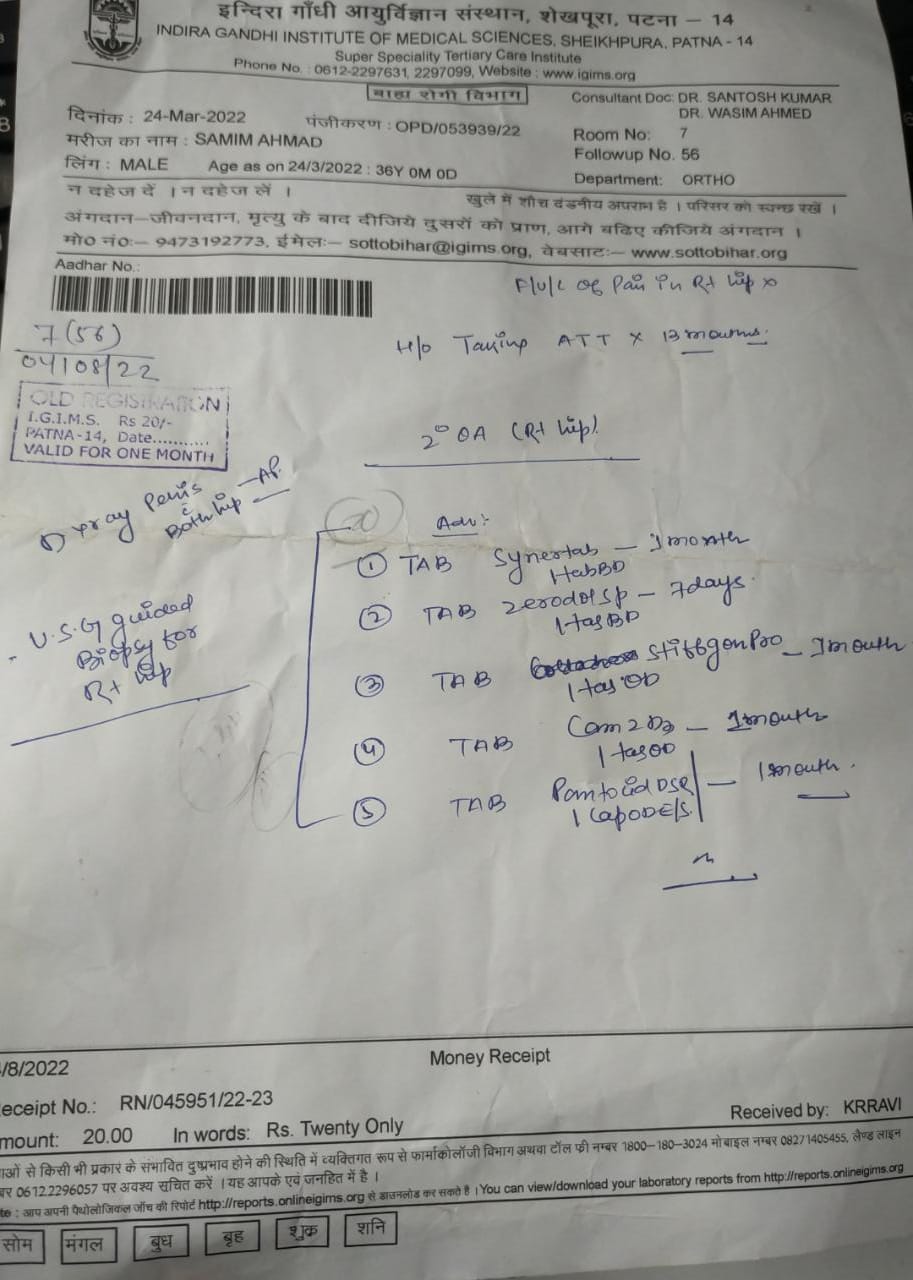 इन्दिरा गाँधी आयुर्विज्ञान संस्थान, शेखपूरा, पटना – 14
INDIRA GANDHI INSTITUTE OF MEDICAL SCIENCES, SHEIKHPURA, PATNA - 14
Super Speciality Tertiary Care Institute
Phone No. : 0612-2297631, 2297099, Website : www.igims.org
बाह्य रोगी विभाग
Consultant Doc: DR. SANTOSH KUMAR
DR. WASIM AHMED
दिनांक : 24-Mar-2022
पंजीकरण : OPD/053939/22
Room No: 7
मरीज का नाम : SAMIM AHMAD
Followup No. 56
लिंग : MALE Age as on 24/3/2022 : 36Y 0M 0D
Department: ORTHO
न दहेज दें । न दहेज लें ।
खुले में शौच दंडनीय अपराध है । परिसर को स्वच्छ रखें ।
अंगदान–जीवनदान, मृत्यु के बाद दीजिये दुसरों को प्राण, आगे बढिए कीजिये अंगदान ।
मो० नं०:– 9473192773, ईमेल:– sottobihar@igims.org, वेबसाट:– www.sottobihar.org
Aadhar No.:
F/U/C of Pain in Rt hip
7 (56)
04/08/22
H/o Taking ATT x 13 months.
OLD REGISTRATION
I.G.I.M.S. Rs 20/-
PATNA-14, Date...........
VALID FOR ONE MONTH
2° OA (Rt hip)
xray Pelvis – AP.
c Both hip
Adv:-
① TAB Synertab – 1 month
1 tab BD
② TAB Zerodol SP – 7 days
1 tab BD
- U.S.G guided
Biopsy for
Rt hip
③ TAB Stiffgon Pro – 1 month
1 tab OD
④ TAB Cam 2 D3 – 1 month
1 tab OD
⑤ TAB Pantocid DSR – 1 month.
1 Cap OD E/S
/8/2022
Money Receipt
eceipt No.: RN/045951/22-23
Received by: KRRAVI
mount: 20.00 In words: Rs. Twenty Only
ओं से किसी भी प्रकार के संभावित दुष्प्रभाव होने की स्थिति में व्यक्तिगत रूप से फार्माकोलॉजी विभाग अथवा टॉल फ्री नम्बर 1800–180–3024 मोबाइल नम्बर 08271405455, लैण्ड लाइन
बर 0612.2296057 पर अवश्य सूचित करें । यह आपके एवं जनहित में है ।
te : आप अपनी पैथोलोजिकल जाँच की रिपोर्ट http://reports.onlineigims.org से डाउनलोड कर सकते है । You can view/download your laboratory reports from http://reports.onlineigims.org
सोम मंगल बुध बृह शुक्र शनि